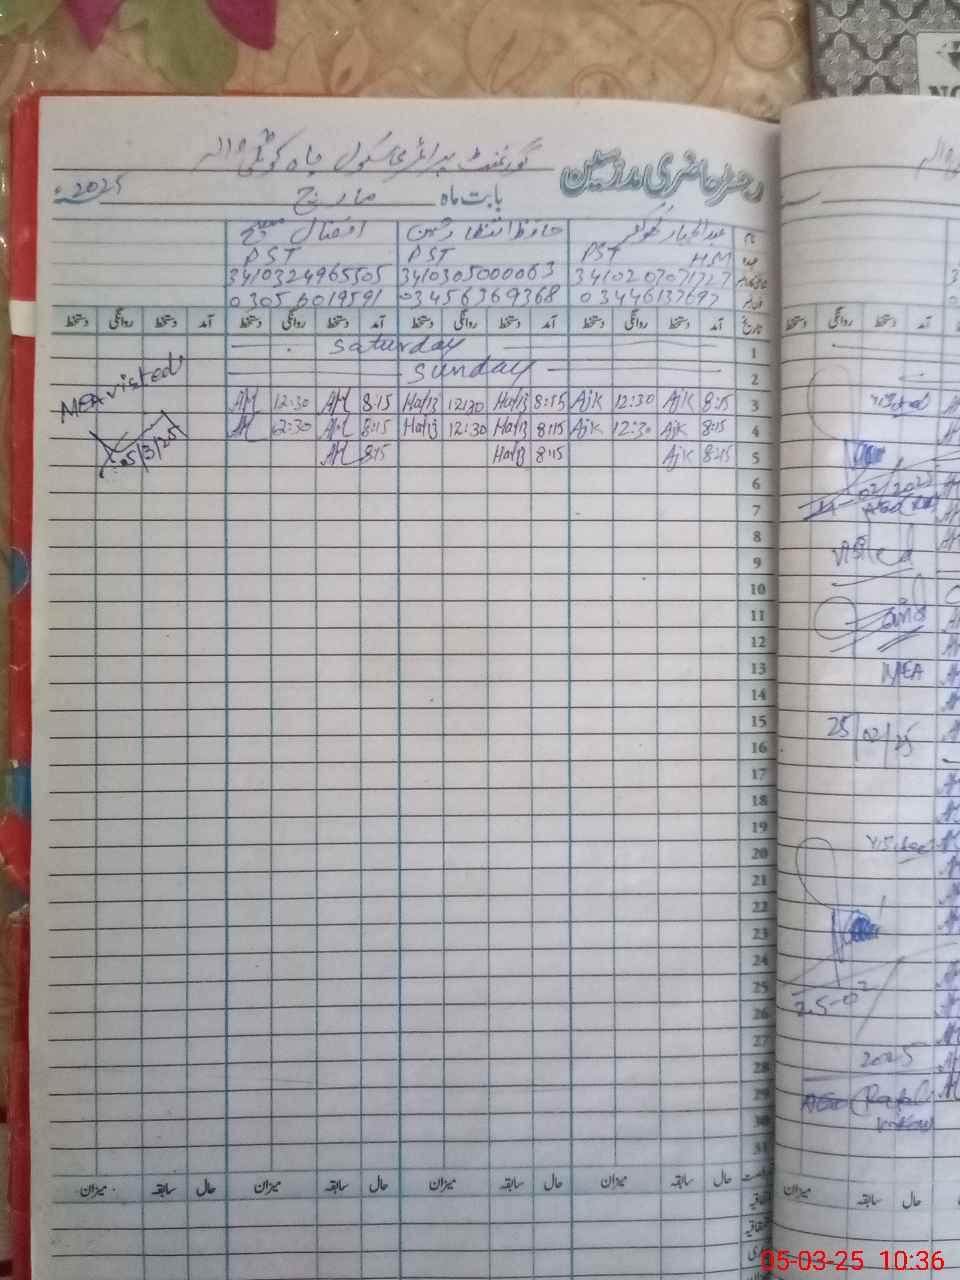 گورنمنٹ پرائمری سکول چاہ کوٹلی والہ
رجسٹر حاضری مدرسین
بابت ماہ مارچ 2025ء
نام عبدالجبار کھوکھر حافظ انتظار حسین افضال مسیح
عہدہ PST HM PST PST
3410207071727 3410305000063 3410324965505
03446137697 03456369368 03056019591
تاریخ آمد دستخط روانگی دستخط آمد دستخط روانگی دستخط آمد دستخط روانگی دستخط آمد دستخط روانگی دستخط
1 Saturday
2 Sunday
3 8:15 Ajk 12:30 Ajk 8:15 Hafiz 12:30 Hafiz 8:15 AM 12:30 AM
4 8:15 Ajk 12:30 Ajk 8:15 Hafiz 12:30 Hafiz 8:15 AM 12:30 AM
5 8:15 Ajk 8:15 Hafiz 8:15 AM
MEA visited
05/3/25
6
7
8
9
10
11
12
13
14
15
16
17
18
19
20
21
22
23
24
25
26
27
28
29
30
31
حال سابقہ میزان حال سابقہ میزان حال سابقہ میزان حال سابقہ میزان
آمد دستخط روانگی دستخط
visited
02/2025
visited
and
MEA
25/02/25
visited
25-02
2025
حال سابقہ میزان
NO
05-03-25 10:36